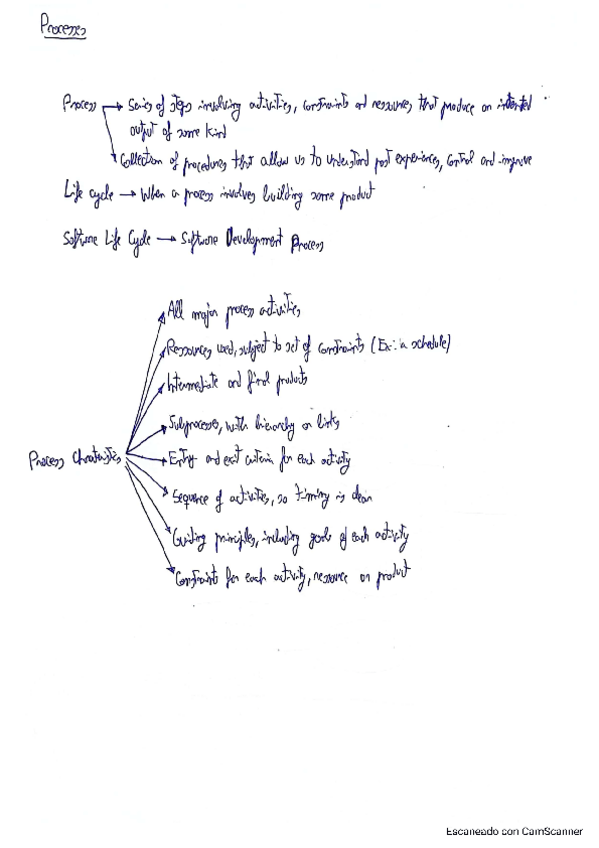 Processes
Process → Series of steps involving activities, constraints and resources that produce an intented
output of some kind
→ Collection of procedures that allow us to understand past experiences, control and improve
Life cycle → When a process involves building some product
Software Life Cycle → Software Development Process
All major process activities
Resources used, subject to set of constraints (Ex: a schedule)
Intermediate and final products
Subprocesses, with hierarchy or links
Process Charateristics
Entry and exit criteria for each activity
Sequence of activities, so timing is clear
Guiding principles, including goals of each activity
Constraints for each activity, resource or product
Escaneado con CamScanner